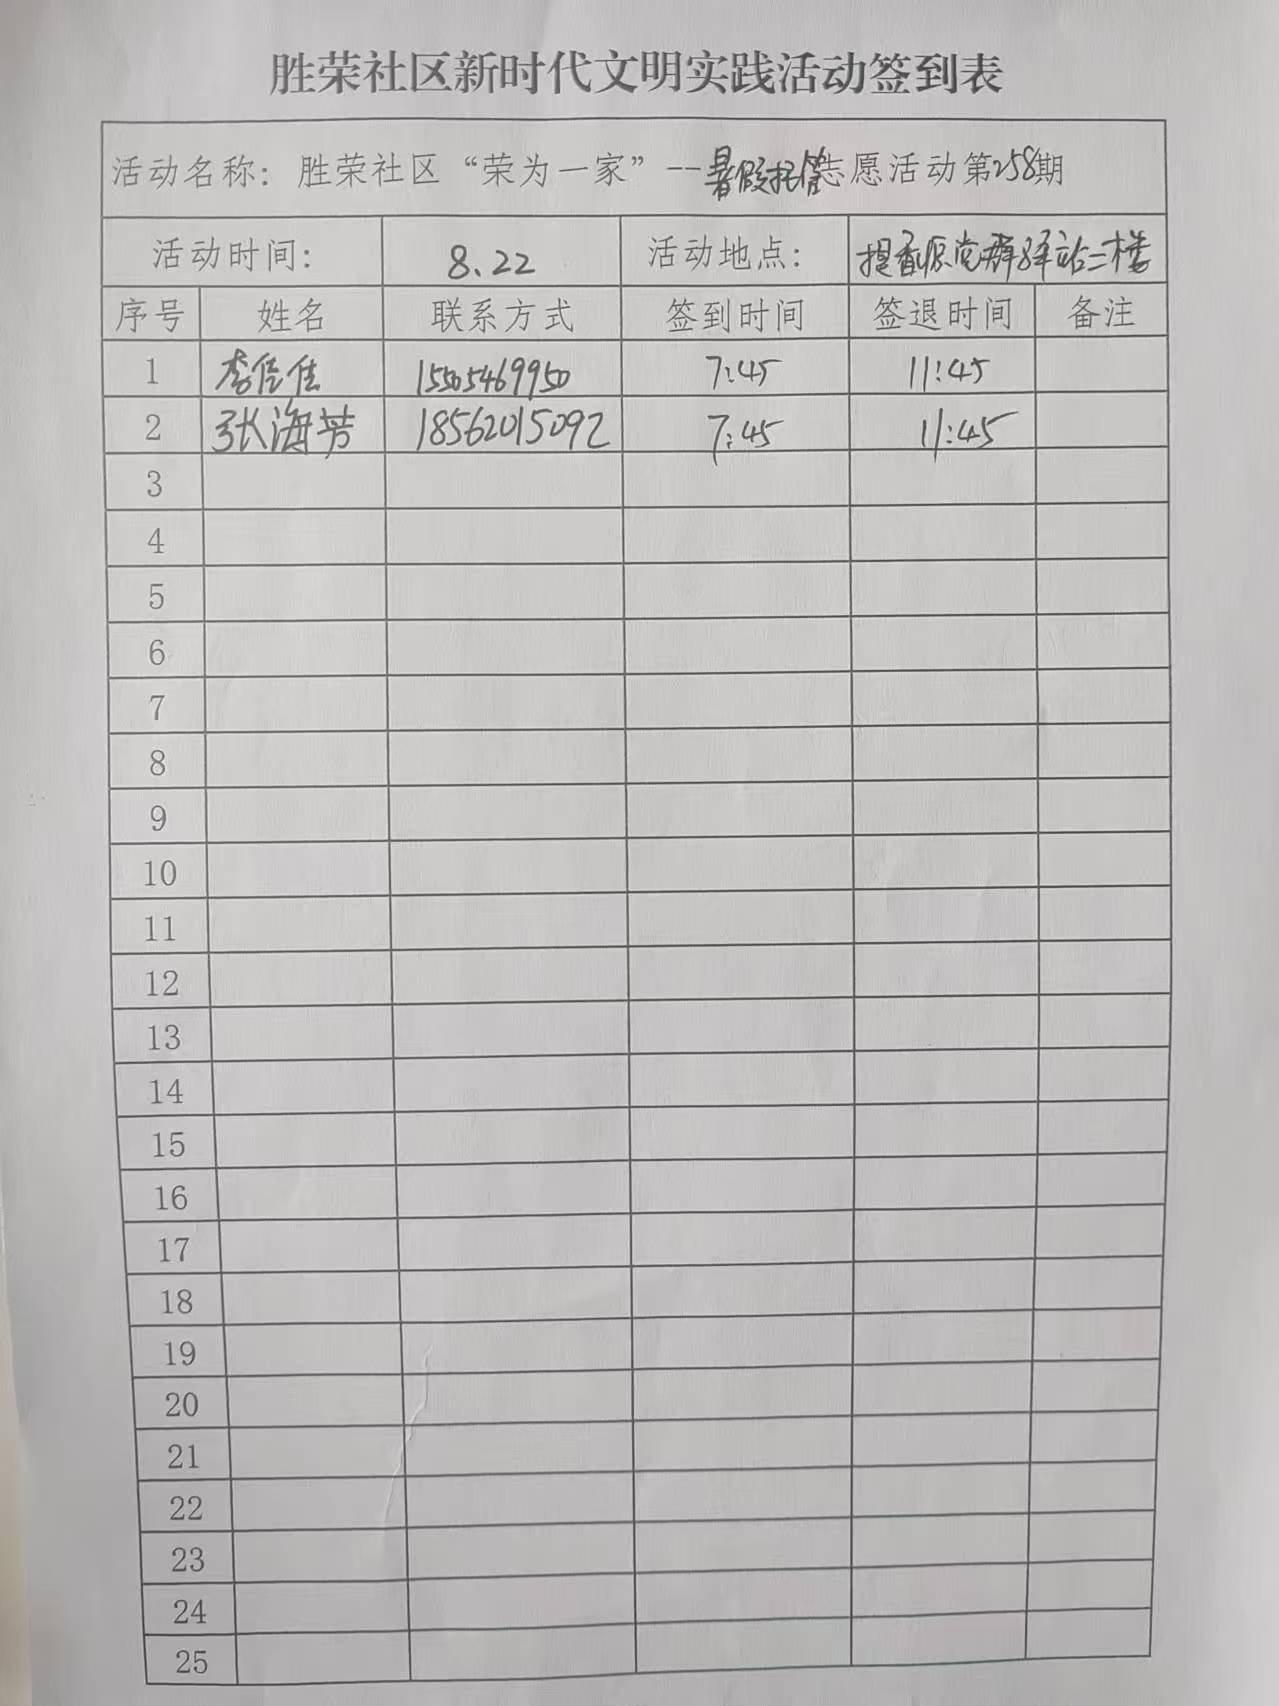 胜荣社区新时代文明实践活动签到表
活动名称：胜荣社区“荣为一家”--暑假托管志愿活动第258期
活动时间： 8.22 活动地点： 提香源党群驿站二楼
序号 姓名 联系方式 签到时间 签退时间 备注
1 李佳佳 15505469950 7:45 11:45
2 张海芳 18562015092 7:45 11:45
3
4
5
6
7
8
9
10
11
12
13
14
15
16
17
18
19
20
21
22
23
24
25